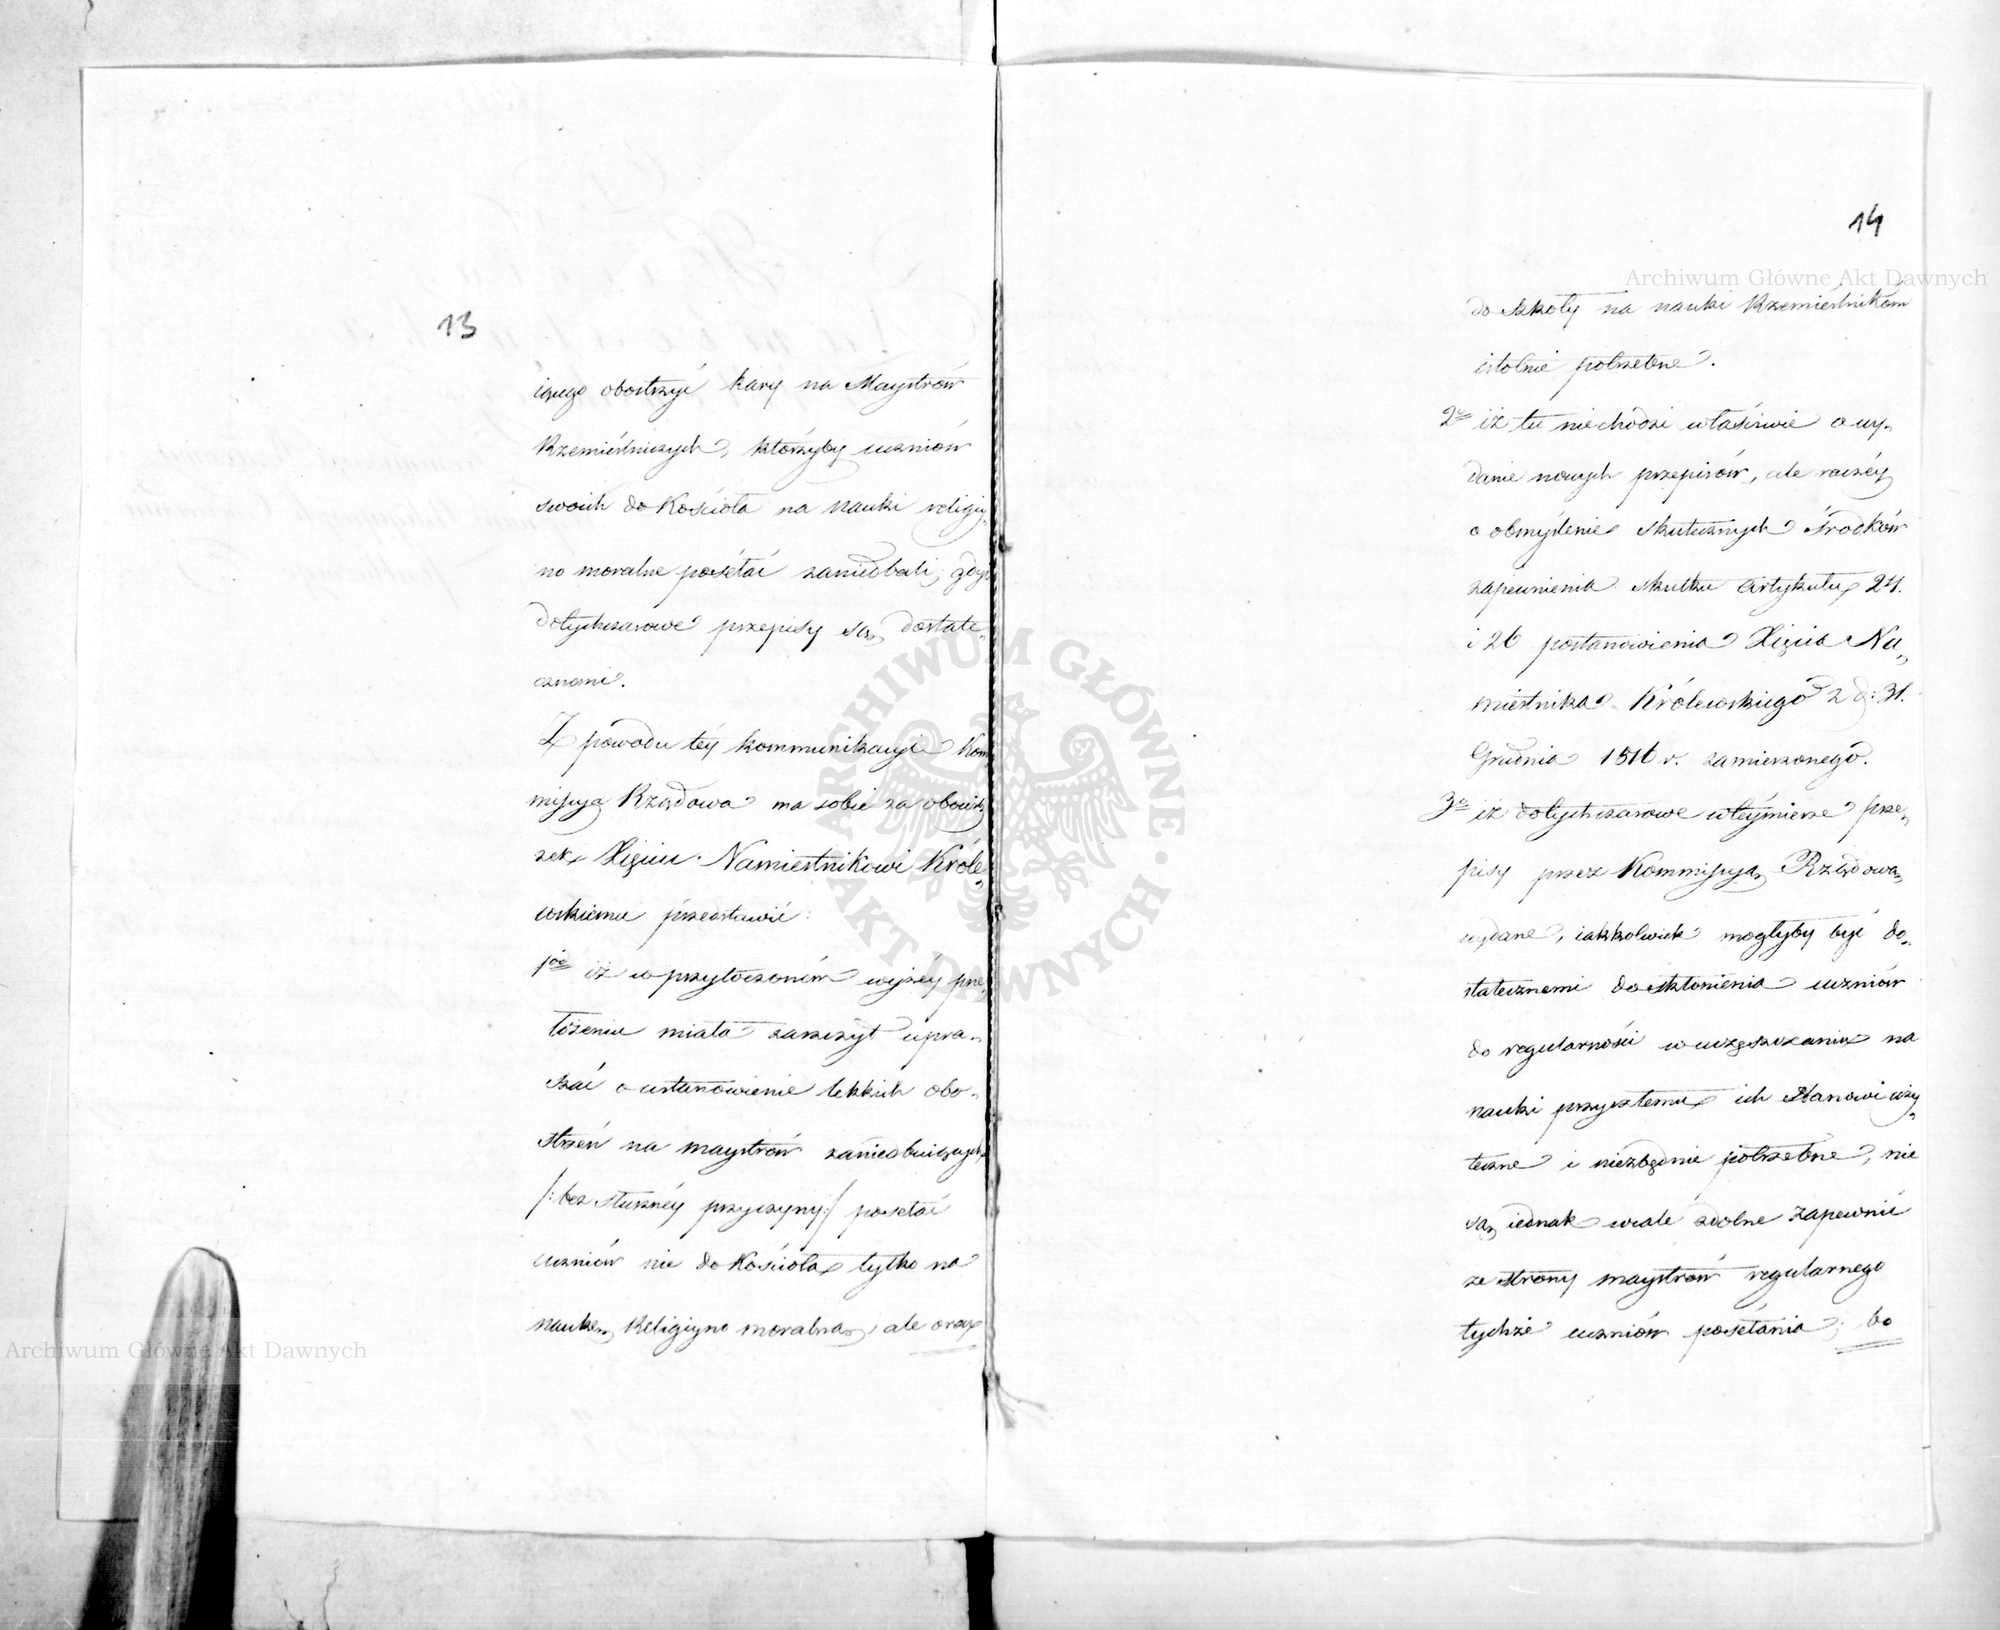 13
iącego obostrzyć kary na Maystrów
Rzemieślniczych, którzyby uczniów
swoich do Kościoła na nauki religiy„
no moralne posełać zaniedbali; gdyż
dotychczasowe przepisy są dostate„
cznemi.
Z powodu téy kommunikacyi Kom„
missya Rządowa ma sobie za obowią„
zek Xięciu Namiestnikowi Króle„
wskiemu przedstawić:
1ód iż w przytoczoném wyżéy prze„
łożeniu miała zaszczyt upra„
szać o ustanowienie lekkich obo„
strzeń na maystrów zaniedbuiących
/: bez słusznéy przyczyny :/ posełać
uczniów nie do Kościoła tylko na
naukę Religiyno moralną, ale oraz
14
do szkoły na nauki Rzemieślnikom
istotnie potrzebne.
2e iż tu nie chodzi właściwie o wy„
danie nowych przepisów, ale raczéy
o obmyślenie skutecznych środków
zapewnienia skutku Artykułu 24.
i 26 postanowienia Xięcia Na„
miestnika Królewskiego z d: 31.
Grudnia 1816 r. zamierzonego.
3e iż dotychczasowe w téymierze prze„
pisy przez Kommissyą Rządową
wydane, iakkolwiek mogłyby być do„
statecznemi do skłonienia uczniów
do regularności w uczęszczaniu na
nauki przyszłemu ich Stanowi uży„
teczne i niezbędnie potrzebne, nie
są iednak wcale zdolne zapewnić
ze strony maystrów regularnego
tychże uczniów posełania; bo
Archiwum Główne Akt Dawnych
Archiwum Główne Akt Dawnych
ARCHIWUM GŁÓWNE · AKT DAWNYCH ·